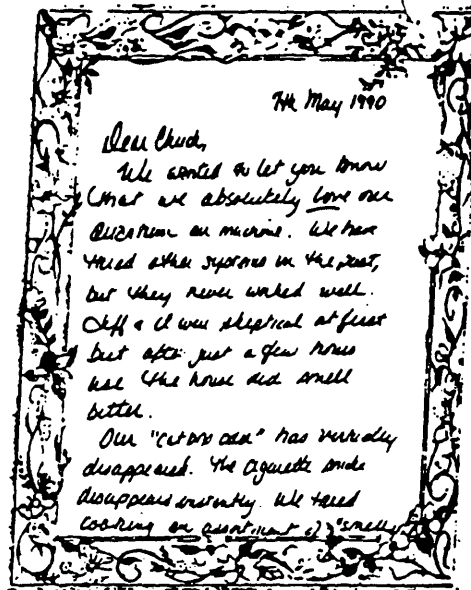 7th May 1990
Dear Chuck,
We wanted to let you know
that we absolutely love our
air machine. We have
tried other systems in the past,
but they never worked well.
Jeff & I was skeptical at first
but after just a few hours
use the house did smell
better.
Our "cat box odor" has virtually
disappeared. The cigarette smoke
disappears instantly. We tried
cooking an assortment of "smelly